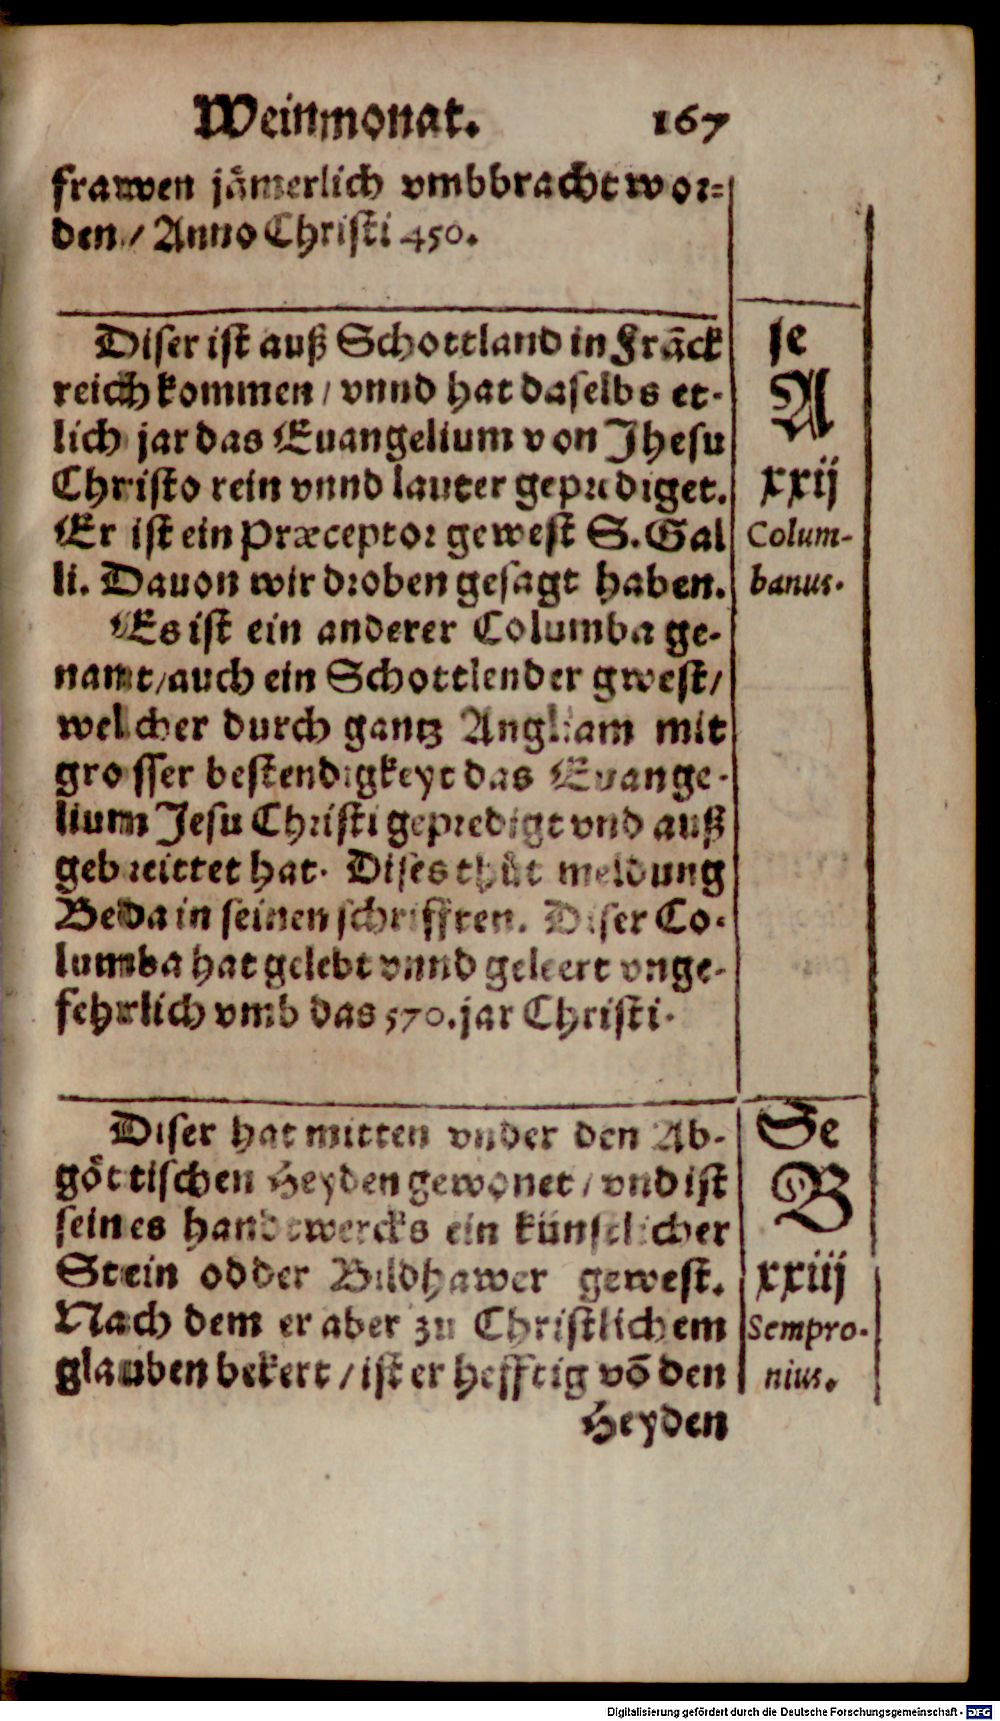 Weinmonat. 167
frawen jämerlich vmbbracht wor=
den / Anno Christi 450.
Diser ist auß Schottland in Frāck
reich kommen / vnnd hat daselbs et-
lich jar das Euangelium von Jhesu
Christo rein vnnd lauter geprediget.
Er ist ein Præceptor gewest S. Gal
li. Dauon wir droben gesagt haben.
Es ist ein anderer Columba ge-
namt / auch ein Schottlender gwest /
welcher durch gantz Angliam mit
grosser bestendigkeyt das Euange-
lium Jesu Christi gepredigt vnd auß
gebreittet hat. Dises thůt meldung
Beda in seinen schrifften. Diser Co-
lumba hat gelebt vnnd geleert vnge-
fehrlich vmb das 570. jar Christi.
je
A
xxij
Colum-
banus.
Diser hat mitten vnder den Ab-
göttischen Heyden gewonet / vnd ist
seines handtwercks ein künstlicher
Stein odder Bildhawer gewest.
Nach dem er aber zu Christlichem
glauben bekert / ist er hefftig vō den
Se
B
xxiij
Sempro-
nius.
Heyden
Digitalisierung gefördert durch die Deutsche Forschungsgemeinschaft - DFG